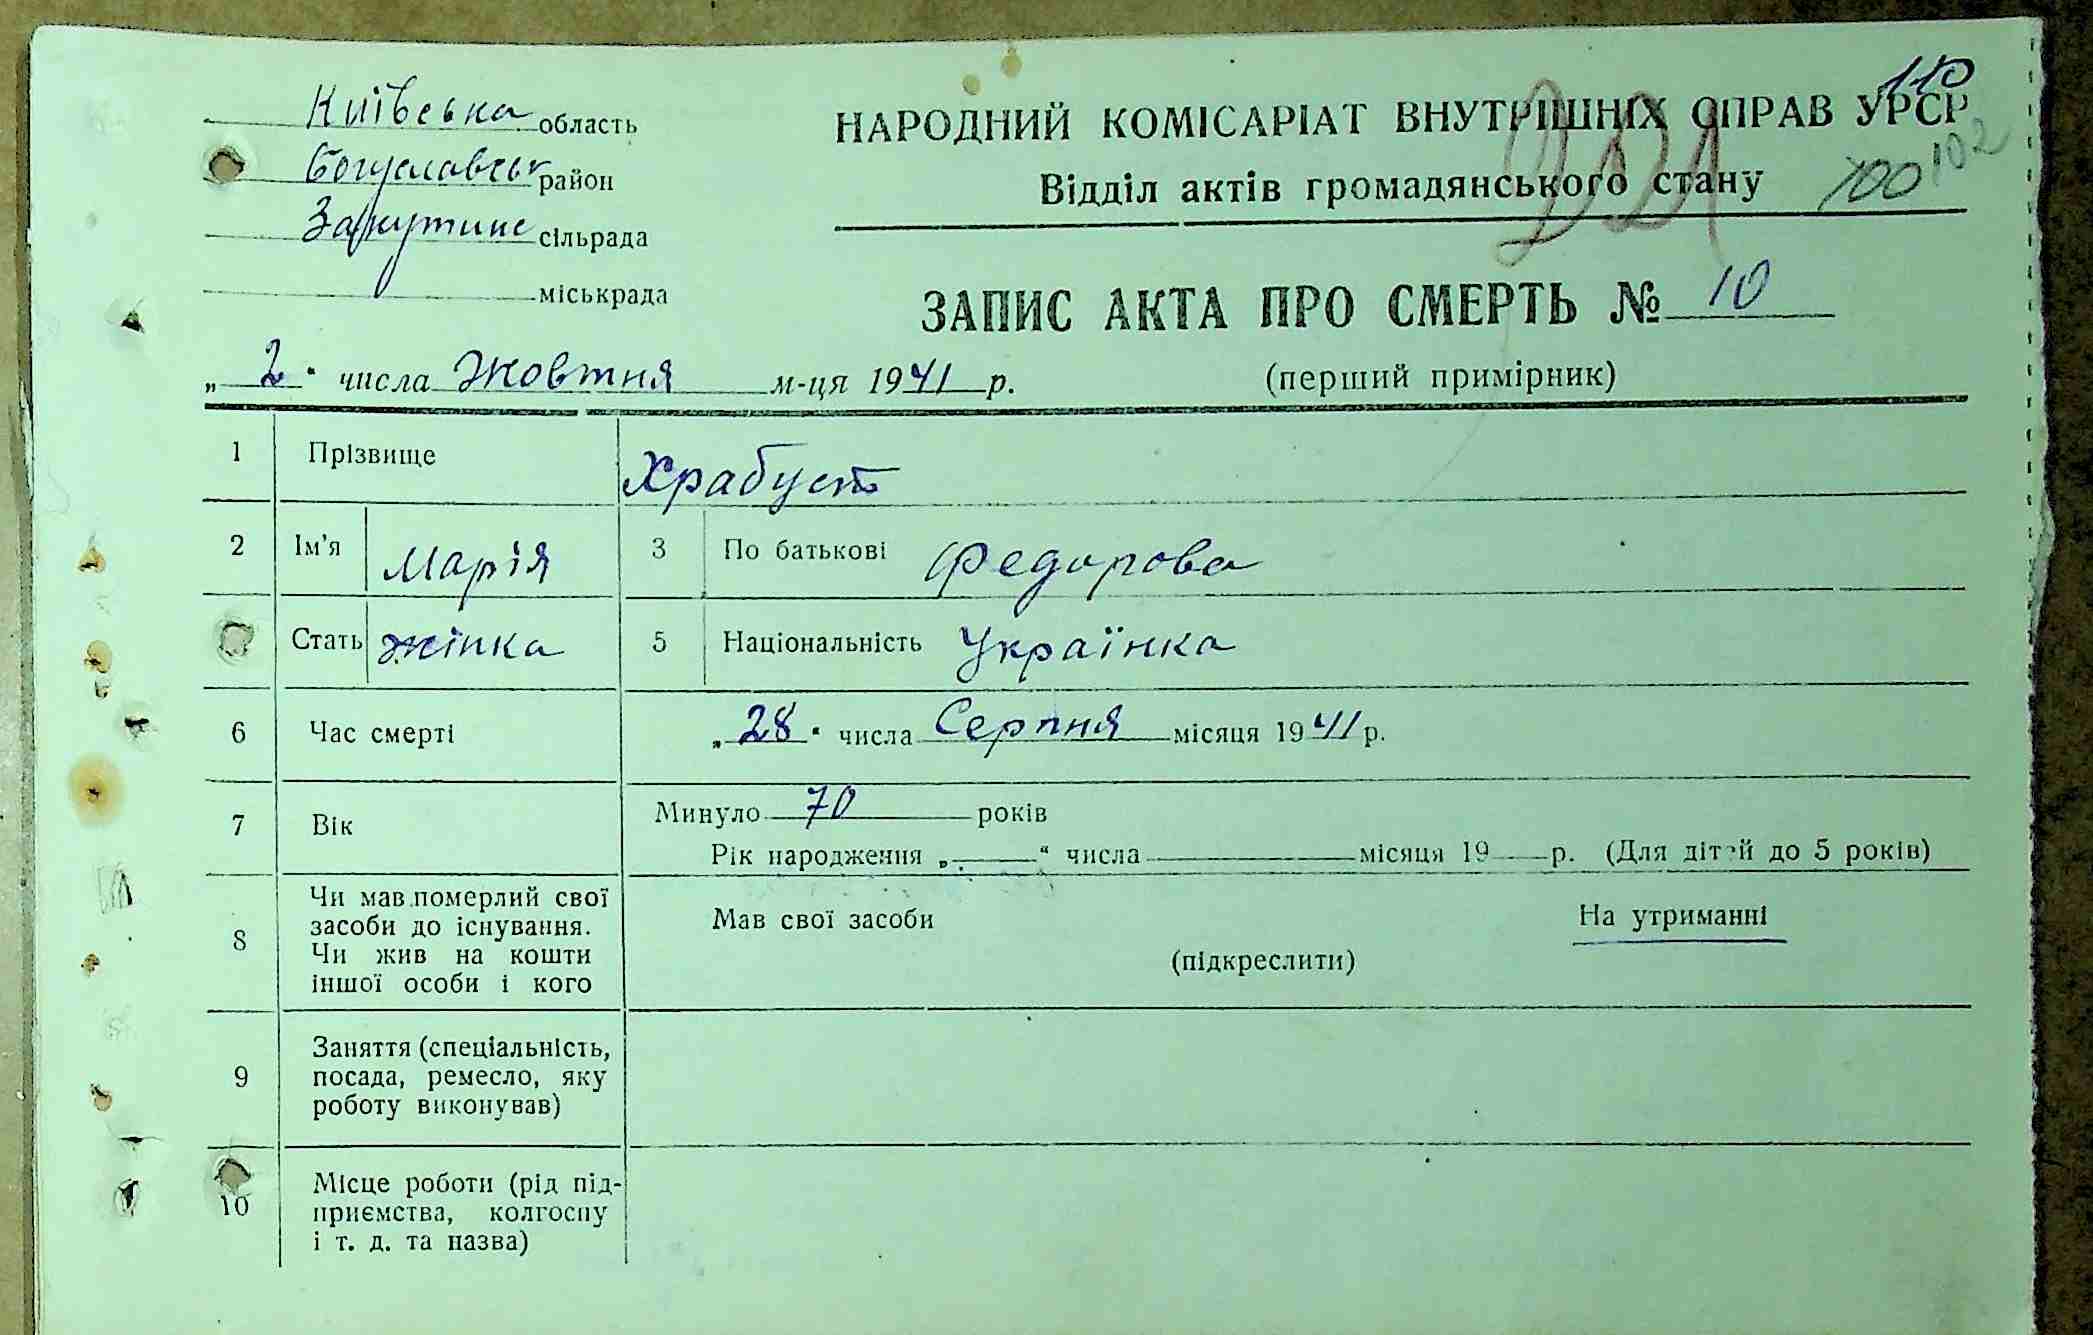 Київська область
Богуславськ район
Закутинс сільрада
міськрада
НАРОДНИЙ КОМІСАРІАТ ВНУТРІШНІХ СПРАВ УРСР
110
Відділ актів громадянського стану
221
100 102
ЗАПИС АКТА ПРО СМЕРТЬ № 10
„2“ числа Жовтня м-ця 1941 р.
(перший примірник)
1 Прізвище Храбуст
2 Ім'я Марія 3 По батькові Федорова
Стать жінка 5 Національність Українка
6 Час смерті „28“ числа Серпня місяця 1941 р.
7 Вік Минуло 70 років
Рік народження „ “ числа місяця 19 р. (Для дітей до 5 років)
8 Чи мав померлий свої
засоби до існування.
Чи жив на кошти
іншої особи і кого
Мав свої засоби На утриманні
(підкреслити)
9 Заняття (спеціальність,
посада, ремесло, яку
роботу виконував)
10 Місце роботи (рід під-
приємства, колгоспу
і т. д. та назва)